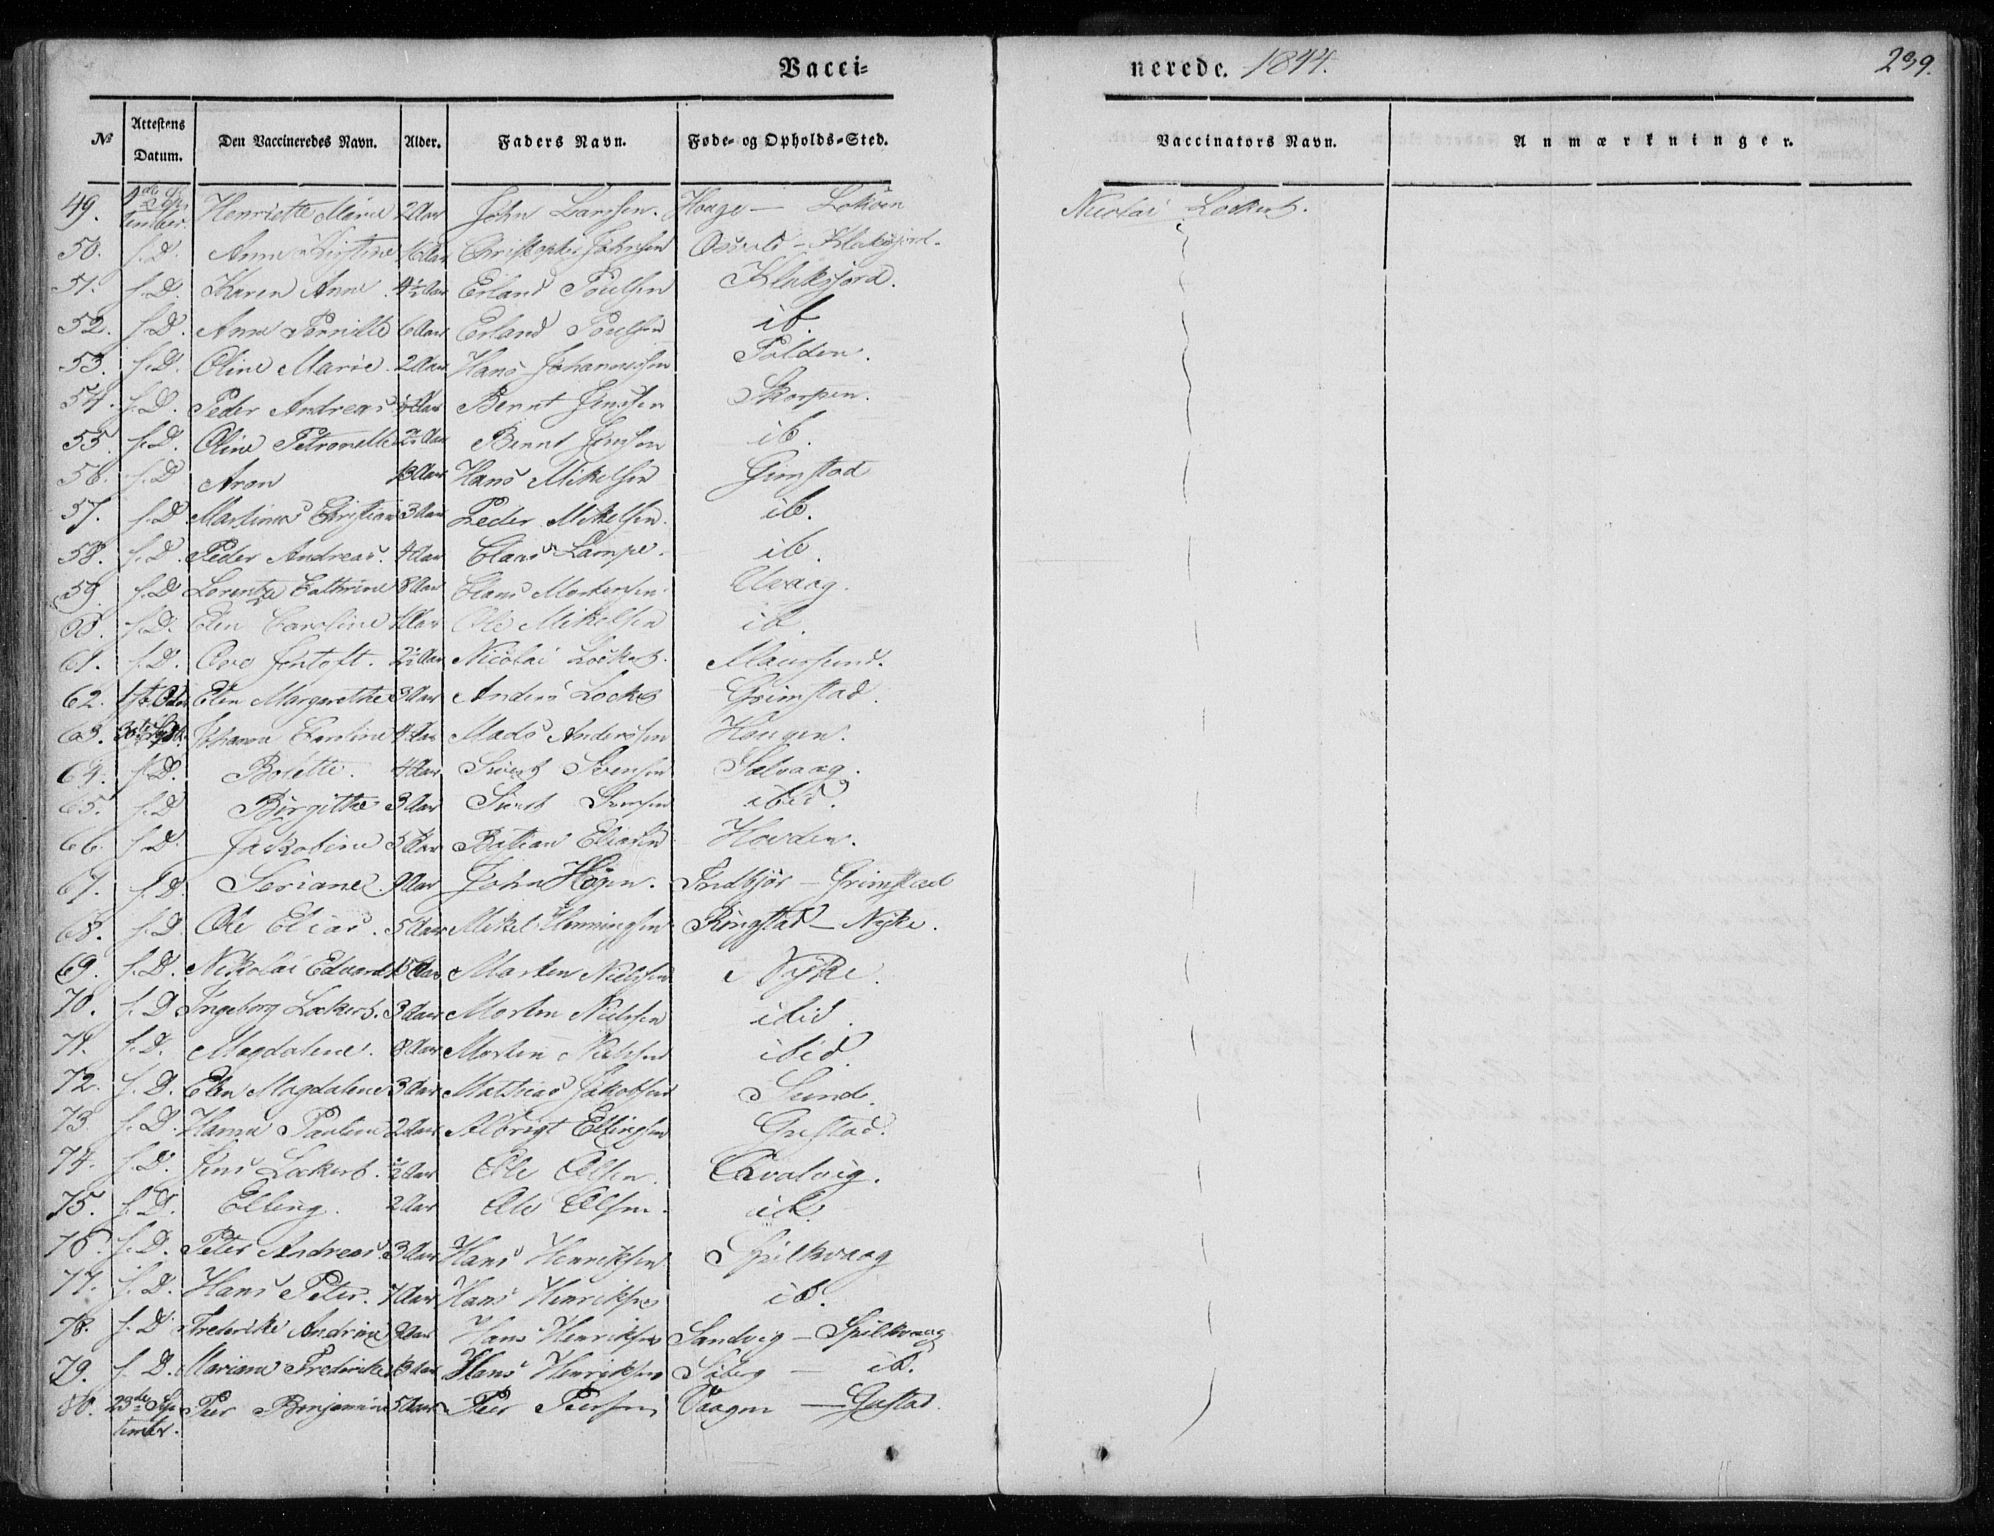 Vacci=
nerede. 1844.
239.
№ Attestens Datum. Den Vaccineredes Navn. Alder. Faders Navn. Føde- og Opholds-Sted. Vaccinators Navn. Anmærkninger.
49. September. Henriette Marie 2 Aar John Larssen. Houge — Nicolai Lockert.
50. s. D. Anne Kirstine Christopher Johnsen
51. s. D. Karen Anne 4½ Aar Erland Poulsen Klaksjord.
52. s. D. Anne Pernille 6 Aar Erland Poulsen ib.
53. s. D. Oline Marie 2 Aar Hans Johannessen Polden.
54. s. D. Peder Andreas Bernt Jenssen Skorpen.
55. s. D. Oline Petronelle Bernt Jenssen ib.
56. s. D. Aron 13 Aar Hans Mikelsen Grimstad
57. s. D. Martinus Christian 3 Aar Peder Mikelsen. ib.
58. s. D. Peder Andreas. 4 Aar Claus Lampe. ib.
59. s. D. Lorentze Cathrine 8 Aar Hans Mortensen. Alvaag.
60. s. D. Elen Caroline Ole Mikelsen ib.
61. s. D. Ove Jentoft. 2½ Aar Nicolai Lockert. Maursund.
62. Elen Margarethe 3 Aar Anders Lockert Grimstad.
63. Johanna Caroline 4 Aar Mads Anderssen Haugen.
64. s. D. Bolette. 4 Aar Sivert Svensen Selvaag.
65. s. D. Birgithe 3 Aar Sivert Svensen ibid.
66. s. D. Jakobine Batian Eliassen Hovden.
67. s. D. Seriane. 9 Aar John Hansen. Indbjør — Grimstad
68. s. D. Ole Elias. 5 Aar Mikel Henningsen Ringstad — Nyke.
69. s. D. Nikolai Edvard 15 Aar Morten Nielssen Nyke.
70. s. D. Ingeborg Lockert. 3 Aar Morten Nielssen ibid.
71. s. D. Magdalene. 8 Aar Morten Nielssen ibid
72. s. D. Elen Magdalene 3 Aar Mathias Jakobsen Sund.
73. s. D. Hanna Pauline 2 Aar Albrigt Ellingsen Gustad.
74. s. D. Jens Lockert. ½ Aar Ole Olsen. Qvalvig.
75. s. D. Elling. 2 Aar Ole Olsen. ib.
76. s. D. Peter Andreas 3 Aar Hans Henriksen Spilkvaag
77. s. D. Hans Peter. 7 Aar Hans Henriksen ib.
78. s. D. Frederike Andrine 9 Aar Hans Henriksen Sandvig — Spilkvaag
79. s. D. Mariane Frederikke 13 Aar Hans Henriksen Siberg — ib.
80. 23de September. Peer Benjamin 5 Aar Peer Peersen Vaagen — Gustad.